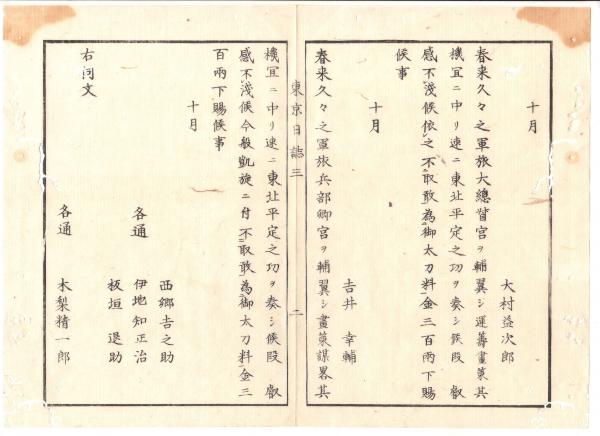 十月
大村益次郎
春来久々之軍旅大總督宮ヲ輔翼シ運籌畫策其
機宜ニ中リ速ニ東北平定之功ヲ奏シ候段 叡
感不淺候依之不取敢為御太刀料金三百兩下賜
候事
十月
吉井幸輔
春来久々之軍旅兵部卿宮ヲ輔翼シ畫策謀畧其
東京日誌三 二
機宜ニ中リ速ニ東北平定之功ヲ奏シ候段 叡
感不淺候今般凱旋ニ付不取敢為御太刀料金三
百兩下賜候事
十月
西郷吉之助
各通 伊地知正治
板垣退助
右同文
各通 木梨精一郎